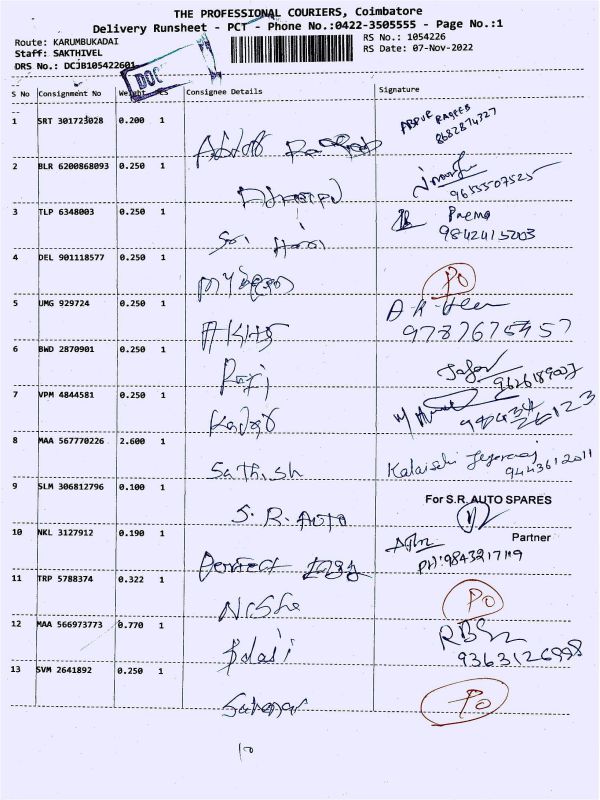 THE PROFESSIONAL COURIERS, Coimbatore
Delivery Runsheet - PCT - Phone No.:0422-3505555 - Page No.:1
Route: KARUMBUKADAI
Staff: SAKTHIVEL
DRS No.: DCJB105422601
RS No.: 1054226
RS Date: 07-Nov-2022
DOC
S No Consignment No Weight PCS Consignee Details Signature
1 SRT 301723028 0.200 1
ABDUR RAQEEB
8682874327
2 BLR 6200868093 0.250 1
9655507525
3 TLP 6348003 0.250 1 Sri Hari
Prema
9842415203
4 DEL 901118577 0.250 1
PO
5 UMG 929724 0.250 1
9787675457
6 BWD 2870901 0.250 1
7 VPM 4844581 0.250 1
8 MAA 567770226 2.600 1 Sathish
Kalaiselvi
9443612011
9 SLM 306812796 0.100 1 S.R. AUTO
For S.R. AUTO SPARES
Partner
10 NKL 3127912 0.190 1 Perfect
PH:9843217119
11 TRP 5788374 0.322 1 Nisha
PO
12 MAA 566973773 0.770 1 Balaji
9363126998
13 SVM 2641892 0.250 1
PO
10